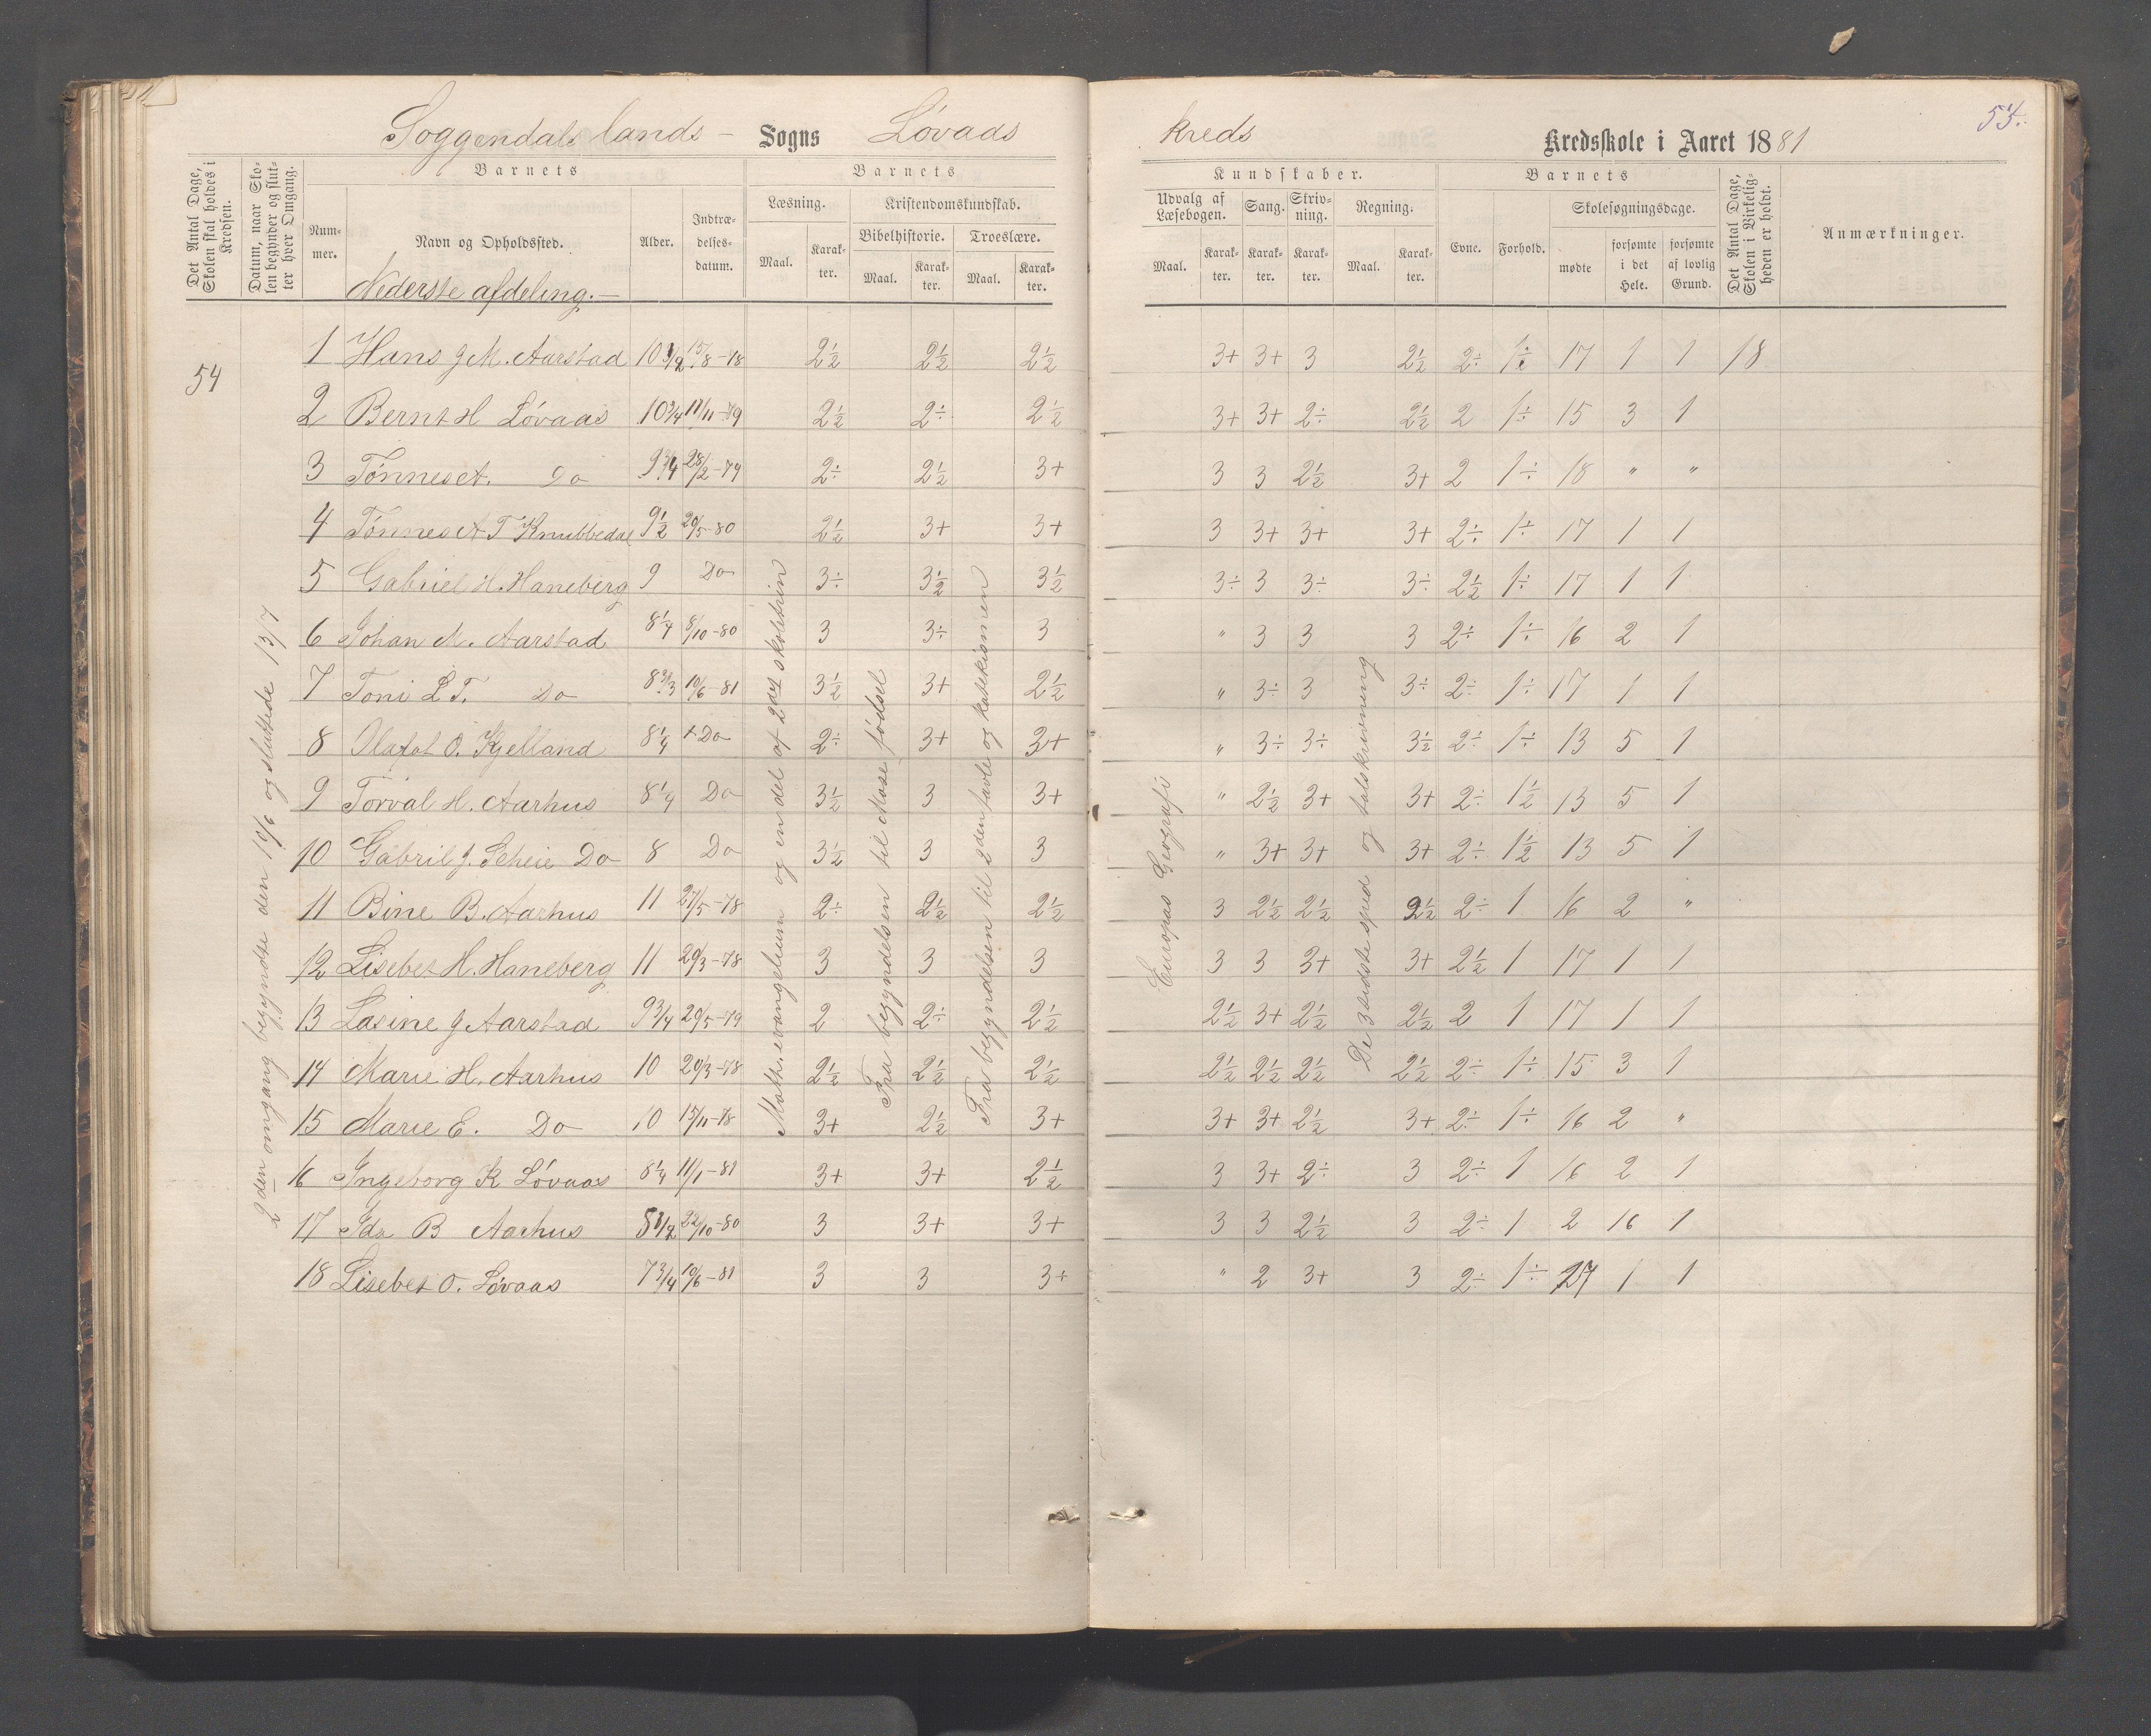 Soggendals lands - Sogns Løvaas kreds Kredsskole i Aaret 1881
55.
Det Antal Dage, Skolen skal holdes i Kredsen.
Datum, naar Skolen begynder og slutter hver Omgang.
Barnets
Nummer.
Navn og Opholdssted.
Nederste afdeling.-
Alder.
Indtrædelsesdatum.
Barnets
Læsning.
Maal.
Karakter.
Kristendomskundskab.
Bibelhistorie.
Maal.
Karakter.
Troeslære.
Maal.
Karakter.
Kundskaber.
Udvalg af Læsebogen.
Maal.
Karakter.
Sang.
Karakter.
Skrivning.
Karakter.
Regning.
Maal.
Karakter.
Barnets
Evne.
Forhold.
Skolesøgningsdage.
mødte
forsømte i det Hele.
forsømte af lovlig Grund.
Det Antal Dage, Skolen i Virkeligheden er holdt.
Anmærkninger.
54
2den omgang begyndte den 10/6 og sluttede 13/7
Math. evangelium og en del af 2det skoletrin
Fra begyndelsen til Mose fødsel
Fra begyndelsen til 2den tavle og katekismen
Europas Geografi
De 3 sidste sped og talskrivning
1 Hans J M. Aarstad 10 1/2 15/8-78 2½ 2½ 2½ 3+ 3+ 3 2½ 2÷ 1÷ 17 1 1 18
2 Bernt H Løvaas 10 3/4 11/11-79 2½ 2÷ 2½ 3+ 3+ 2÷ 2½ 2 1÷ 15 3 1
3 Tønnes A. Do 9 3/4 28/2-79 2÷ 2½ 3+ 3 3 2½ 3+ 2 1÷ 18 " "
4 Tønnes A T Knubbedal 9½ 20/5-80 2½ 3+ 3+ 3 3+ 3+ 3+ 2÷ 1÷ 17 1 1
5 Gabriel H. Haneberg 9 Do 3÷ 3½ 3½ 3÷ 3 3÷ 3÷ 2½ 1÷ 17 1 1
6 Johan M. Aarstad 8¼ 8/10-80 3 3÷ 3 " 3 3 3 2÷ 1÷ 16 2 1
7 Toni L T. Do 8 10/6-81 3½ 3+ 2½ " 3÷ 3 3÷ 2÷ 1÷ 17 1 1
8 O. Kjelland 8¼ + Do 2÷ 3+ 3+ " 3÷ 3÷ 3½ 2÷ 1÷ 13 5 1
9 Torval H. Aarhus 8¼ Do 3½ 3 3+ " 2½ 3+ 3+ 2÷ 1½ 13 5 1
10 Gabril J. Scheie Do 8 Do 3½ 3 3 " 3+ 3+ 3+ 2÷ 1½ 13 5 1
11 Bine B. Aarhus 11 27/5-78 2÷ 2½ 2½ 3 2½ 2½ 2½ 2÷ 1 16 2 "
12 Lisebet H. Haneberg 11 20/3-78 3 3 3 3 3 3+ 3+ 2½ 1 17 1 1
13 Lasine J Aarstad 9 3/4 20/5-79 2 2÷ 2½ 2½ 3+ 2½ 2½ 2 1 17 1 1
14 Marie H. Aarhus 10 20/3-78 2½ 2½ 2½ 2½ 2½ 2½ 2½ 2÷ 1÷ 15 3 1
15 Marie E. Do 10 15/11-78 3+ 2½ 3+ 3+ 3+ 2½ 3+ 2÷ 1÷ 16 2 "
16 Ingeborg K Løvaas 8¼ 11/1-81 3+ 3+ 2½ 3 3+ 2÷ 3 2÷ 1 16 2 1
17 Ida B Aarhus 8 1/2 22/10-80 3 3+ 3+ 3 3 2½ 3 2÷ 1 2 16 1
18 Lisebet O. Løvaas 7 3/4 10/6-81 3 3 3+ " 2 3+ 3 2÷ 1÷ 17 1 1